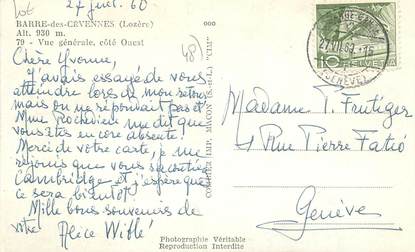 lot
27 juil. 60
BARRE-des-CEVENNES (Lozère)
Alt. 930 m.
79 - Vue générale, côté Ouest
48
Chère Yvonne,
J'avais essayé de vous
atteindre lors de mon retour
mais on ne répondait pas et
Mme Rochedieu me dit que
vous êtes encore absente!
Merci de votre carte, je me
réjouis que vous
Cambridge et j'espère que
ce sera bientôt!
Mille bons souvenirs de
votre Alice Wiblé
COMBIER IMP. MACON (S.-et-L.) "CIM"
27.VII.60
(GENÈVE)
10
HELVETIA
Madame T. Frutiger
1 Rue Pierre Fatio
Genève
Photographie Véritable
Reproduction Interdite